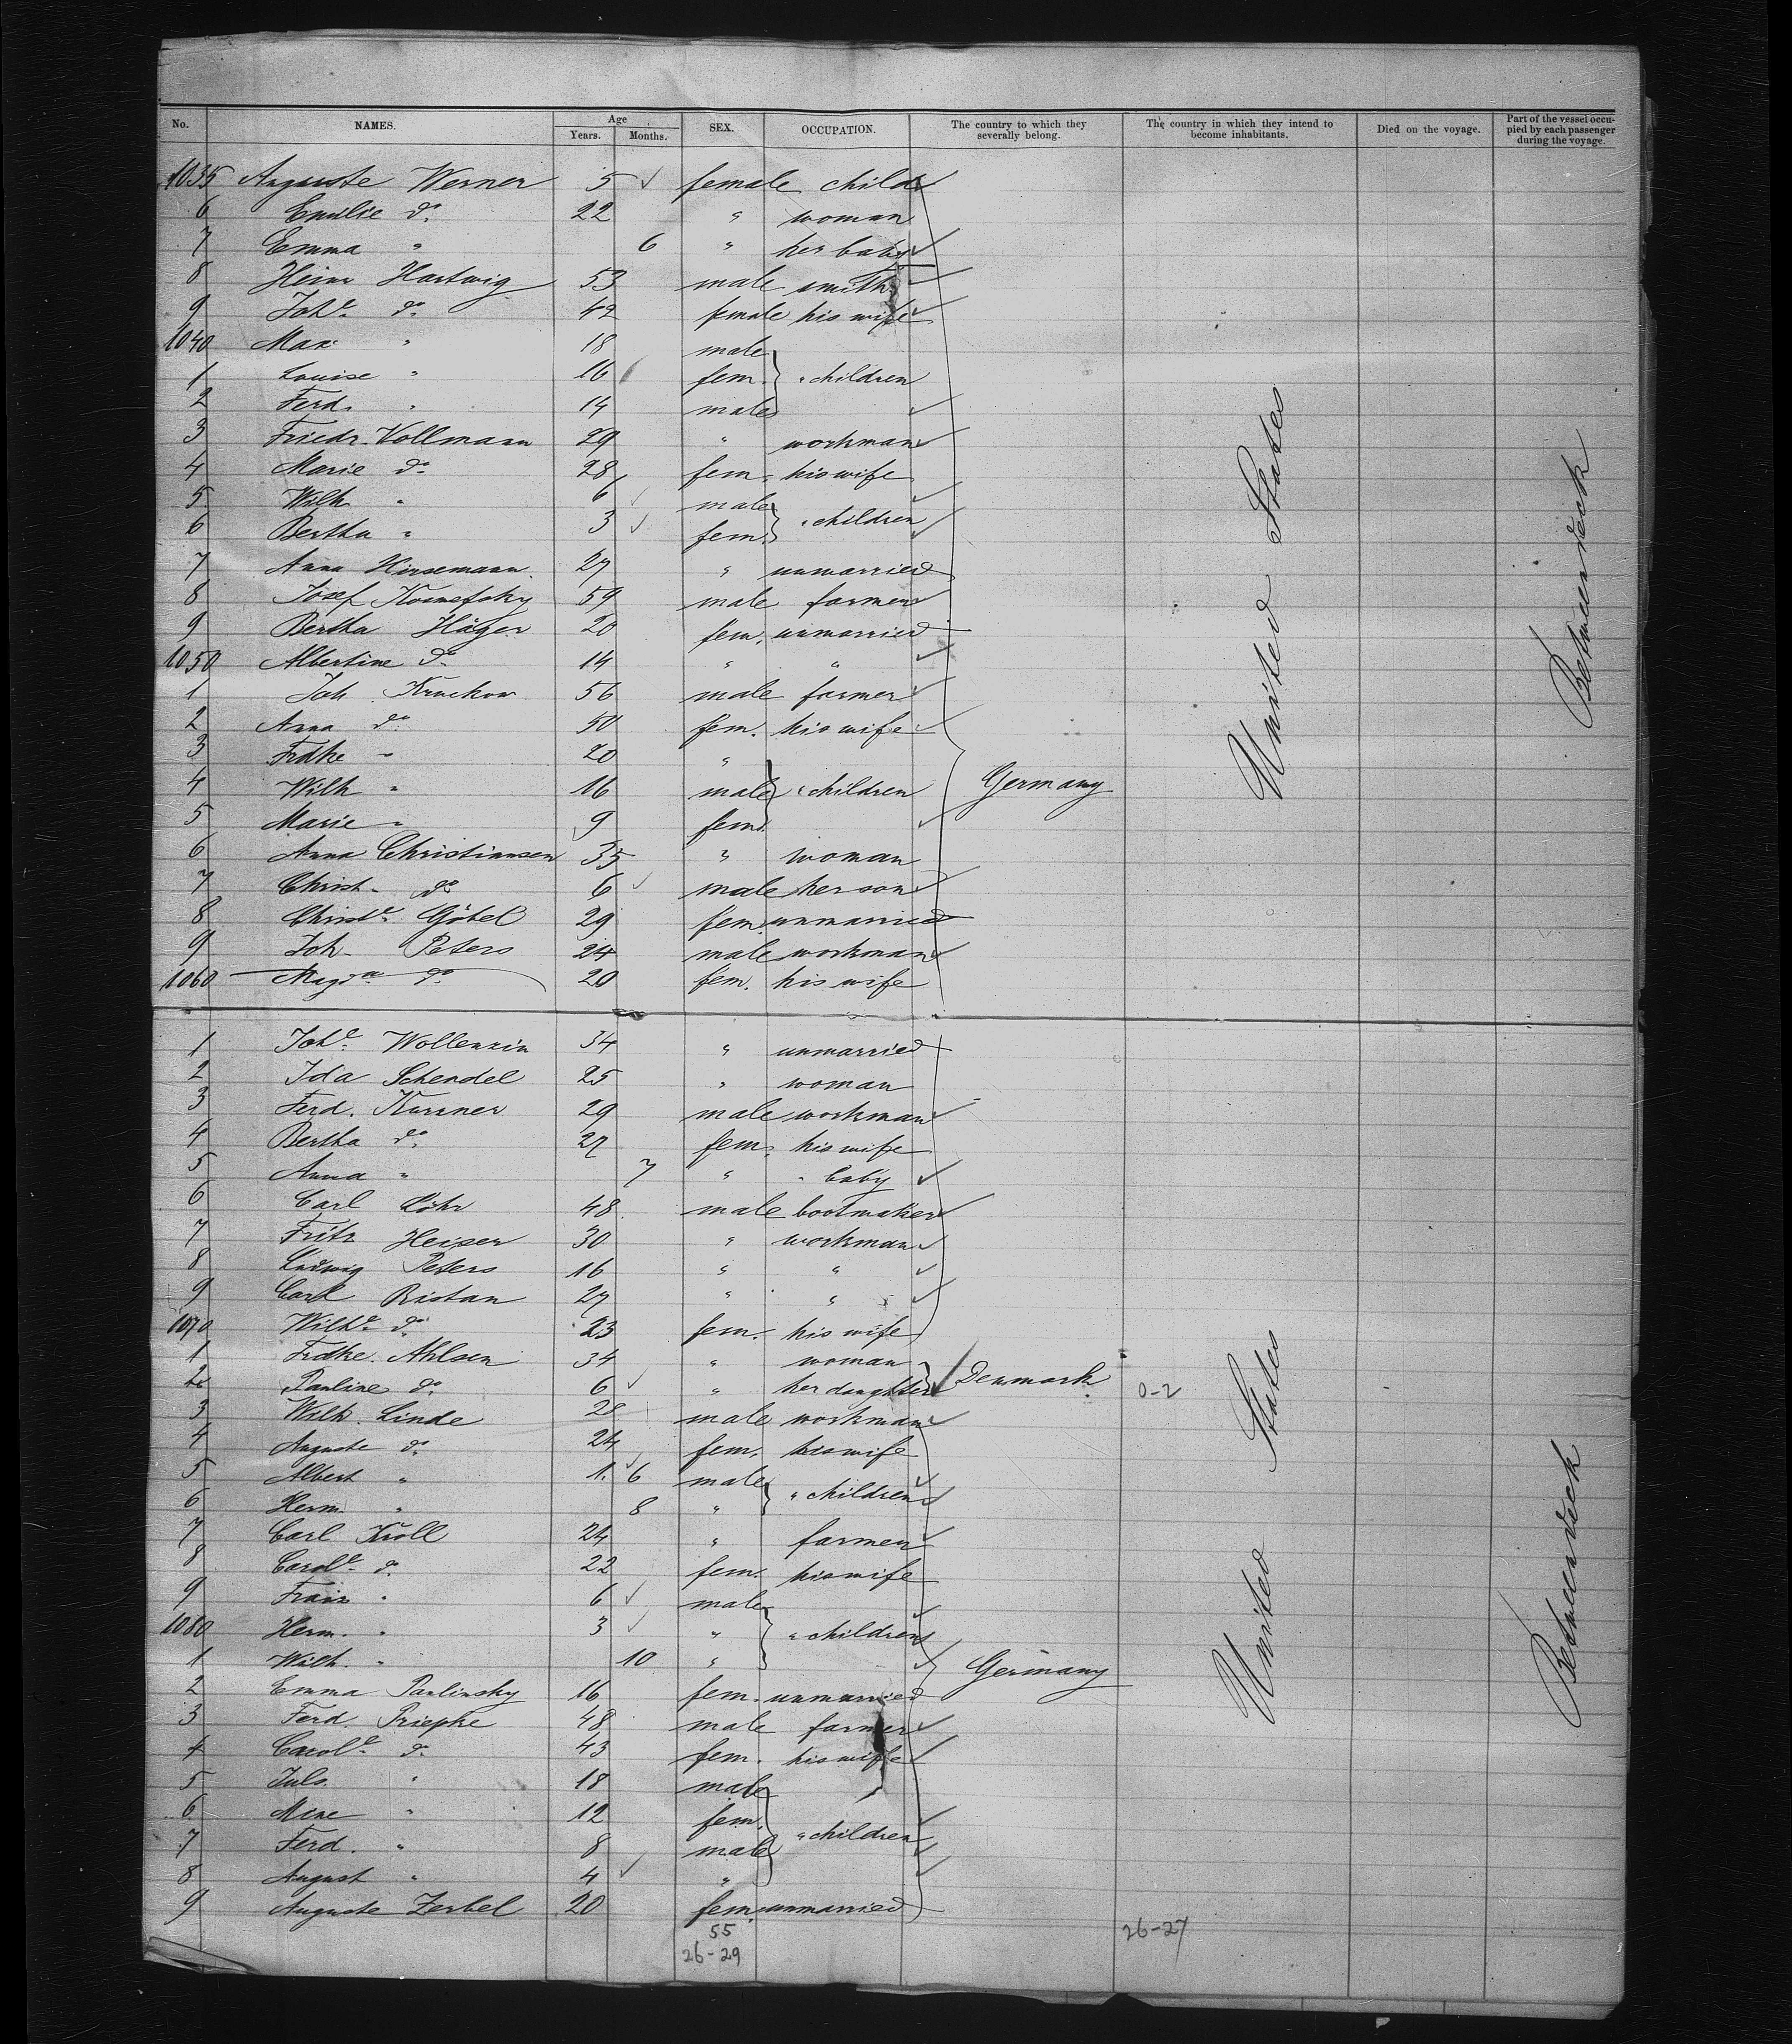 No. NAMES. Age Years. Months. SEX. OCCUPATION. The country to which they severally belong. The country in which they intend to become inhabitants. Died on the voyage. Part of the vessel occupied by each passenger during the voyage.
1035 Auguste Werner 5 female child
6 Emilie do. 22 " woman
7 Emma " 6 " her baby
8 Heinr Hartwig 53 male smith
9 Johe. do. 42 female his wife
1040 Max " 18 male
1 Louise " 16 fem. " children
2 Ferd. " 14 male
3 Friedr. Vollmann 29 " workman
4 Marie do. 28 fem. his wife
5 Wilh " 6 male
6 Bertha " 3 fem. " children
7 Anna Hirsemann 27 " unmarried
8 Josef 59 male farmer
9 Bertha Häger 20 fem. unmarried
1050 Albertine do. 14 " "
1 Joh Kruckow 56 male farmer
2 Anna do. 50 fem. his wife
3 Frdke " 20 "
4 Wilh " 16 male " children Germany United States Betweendeck
5 Marie " 9 fem.
6 Anna Christiansen 35 " woman
7 Christ. do. 6 male her son
8 Christe. Göbel 29 fem. unmarried
9 Joh. Peters 24 male workman
1060 Magda. do. 20 fem. his wife
1 Johe. Wollenzin 34 " unmarried
2 Ida Schendel 25 " woman
3 Ferd. 29 male workman
4 Bertha do. 27 fem. his wife
5 Anna " 7 " " baby
6 Carl Löhr 48 male bootmaker
7 Fritz Heiser 30 " workman
8 Ludwig Peters 16 " "
9 Carl Ristau 27 " "
1070 Wilhe. do. 23 fem. his wife
1 Frdke. Ahlsen 34 " woman
2 Pauline do. 6 " her daughter Denmark 0-2
3 Wilh. Linde 28 male workman
4 Auguste do. 24 fem. his wife
5 Albert " 1. 6 male
6 Herm. " 8 " " children
7 Carl Kroll 24 " farmer
8 Carole. do. 22 fem. his wife
9 Franz " 6 male
1080 Herm. " 3 " " children
1 Wilh. " 10 " Germany United States Betweendeck
2 Emma Paulinsky 16 fem. unmarried
3 Ferd. Priepke 48 male farmer
4 Carole. do. 43 fem. his wife
5 Juls. " 18 male
6 Mine " 12 fem.
7 Ferd. " 8 male " children
8 August " 4 "
9 Auguste Zerbel 20 fem. unmarried
55
26-29 26-27